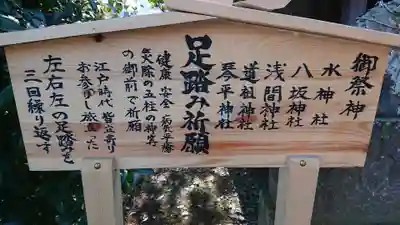 御祭神
水神社
八坂神社
浅間神社
道祖神社
琴平神社
足踏み祈願
健康 安全 病気平癒
災除の五柱の御祭神
の御前で祈願
江戸時代 皆立寄り
お参りし旅立った
左右左の足踏みを
三回繰り返す